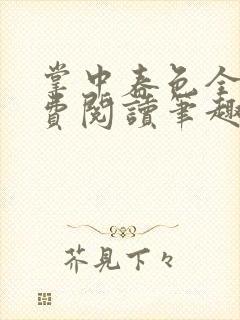 掌中春色全
費閱讀筆趣
芥見下々